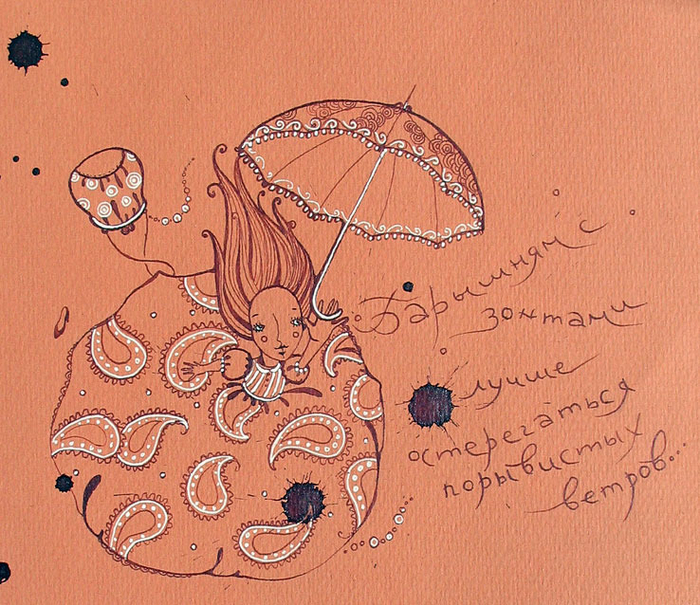 Барышням с
зонтами
лучше
остерегаться
порывистых
ветров...